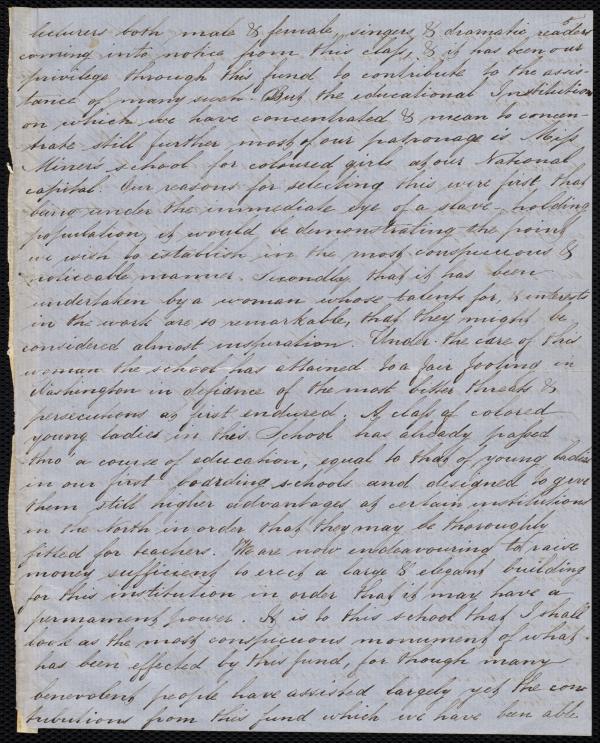 lecturers both male & female, singers & dramatic readers
coming into notice from this class, & it has been our
privilege through this fund to contribute to the assis-
tance of many such. But the educational Institution
on which we have concentrated & mean to concen-
trate still further most of our patronage is Miss
Miner's school for coloured girls at our National
capital. Our reasons for selecting this were first, that
being under the immediate eye of a slave-holding
population, it would be demonstrating the point
we wish to establish in the most conspicuous &
noticeable manner. Secondly that it has been
undertaken by a woman whose talents for, & interests
in the work are so remarkable, that they might be
considered almost inspiration. Under the care of this
woman the school has attained to a fair footing in
Washington in defiance of the most bitter threats &
persecutions at first endured. A class of colored
young ladies in this School has already passed
thro' a course of education, equal to that of young ladies
in our first boarding schools and designed to give
them still higher advantages at certain institutions
in the North in order that they may be thoroughly
fitted for teachers. We are now endeavouring to raise
money sufficient to erect a large & elegant building
for this institution in order that it may have a
permanent power. It is to this school that I shall
look as the most conspicuous monument of what
has been effected by this fund, for though many
benevolent people have assisted largely yet the con
tributions from this fund which we have been able